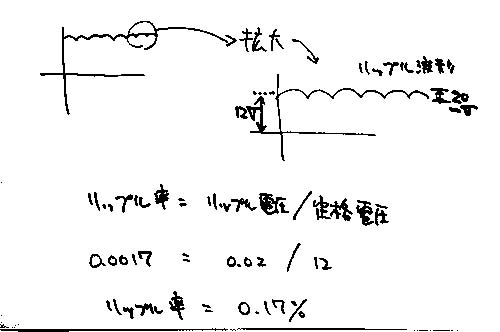 拡大
リップル波形
12V
20
mV
リップル率 = リップル電圧 / 定格電圧
0.0017 = 0.02 / 12
リップル率 = 0.17%